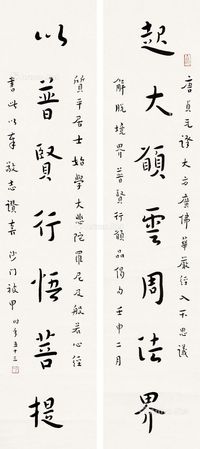 唐貞元譯大方廣佛華嚴經入不思議
起大願雲周法界
解脫境界普賢行願品偈句壬申二月
質平居士始學大悲陀羅尼及般若心經
以普賢行悟菩提
書此以奉敬志讚喜 沙門被甲 時年五十三